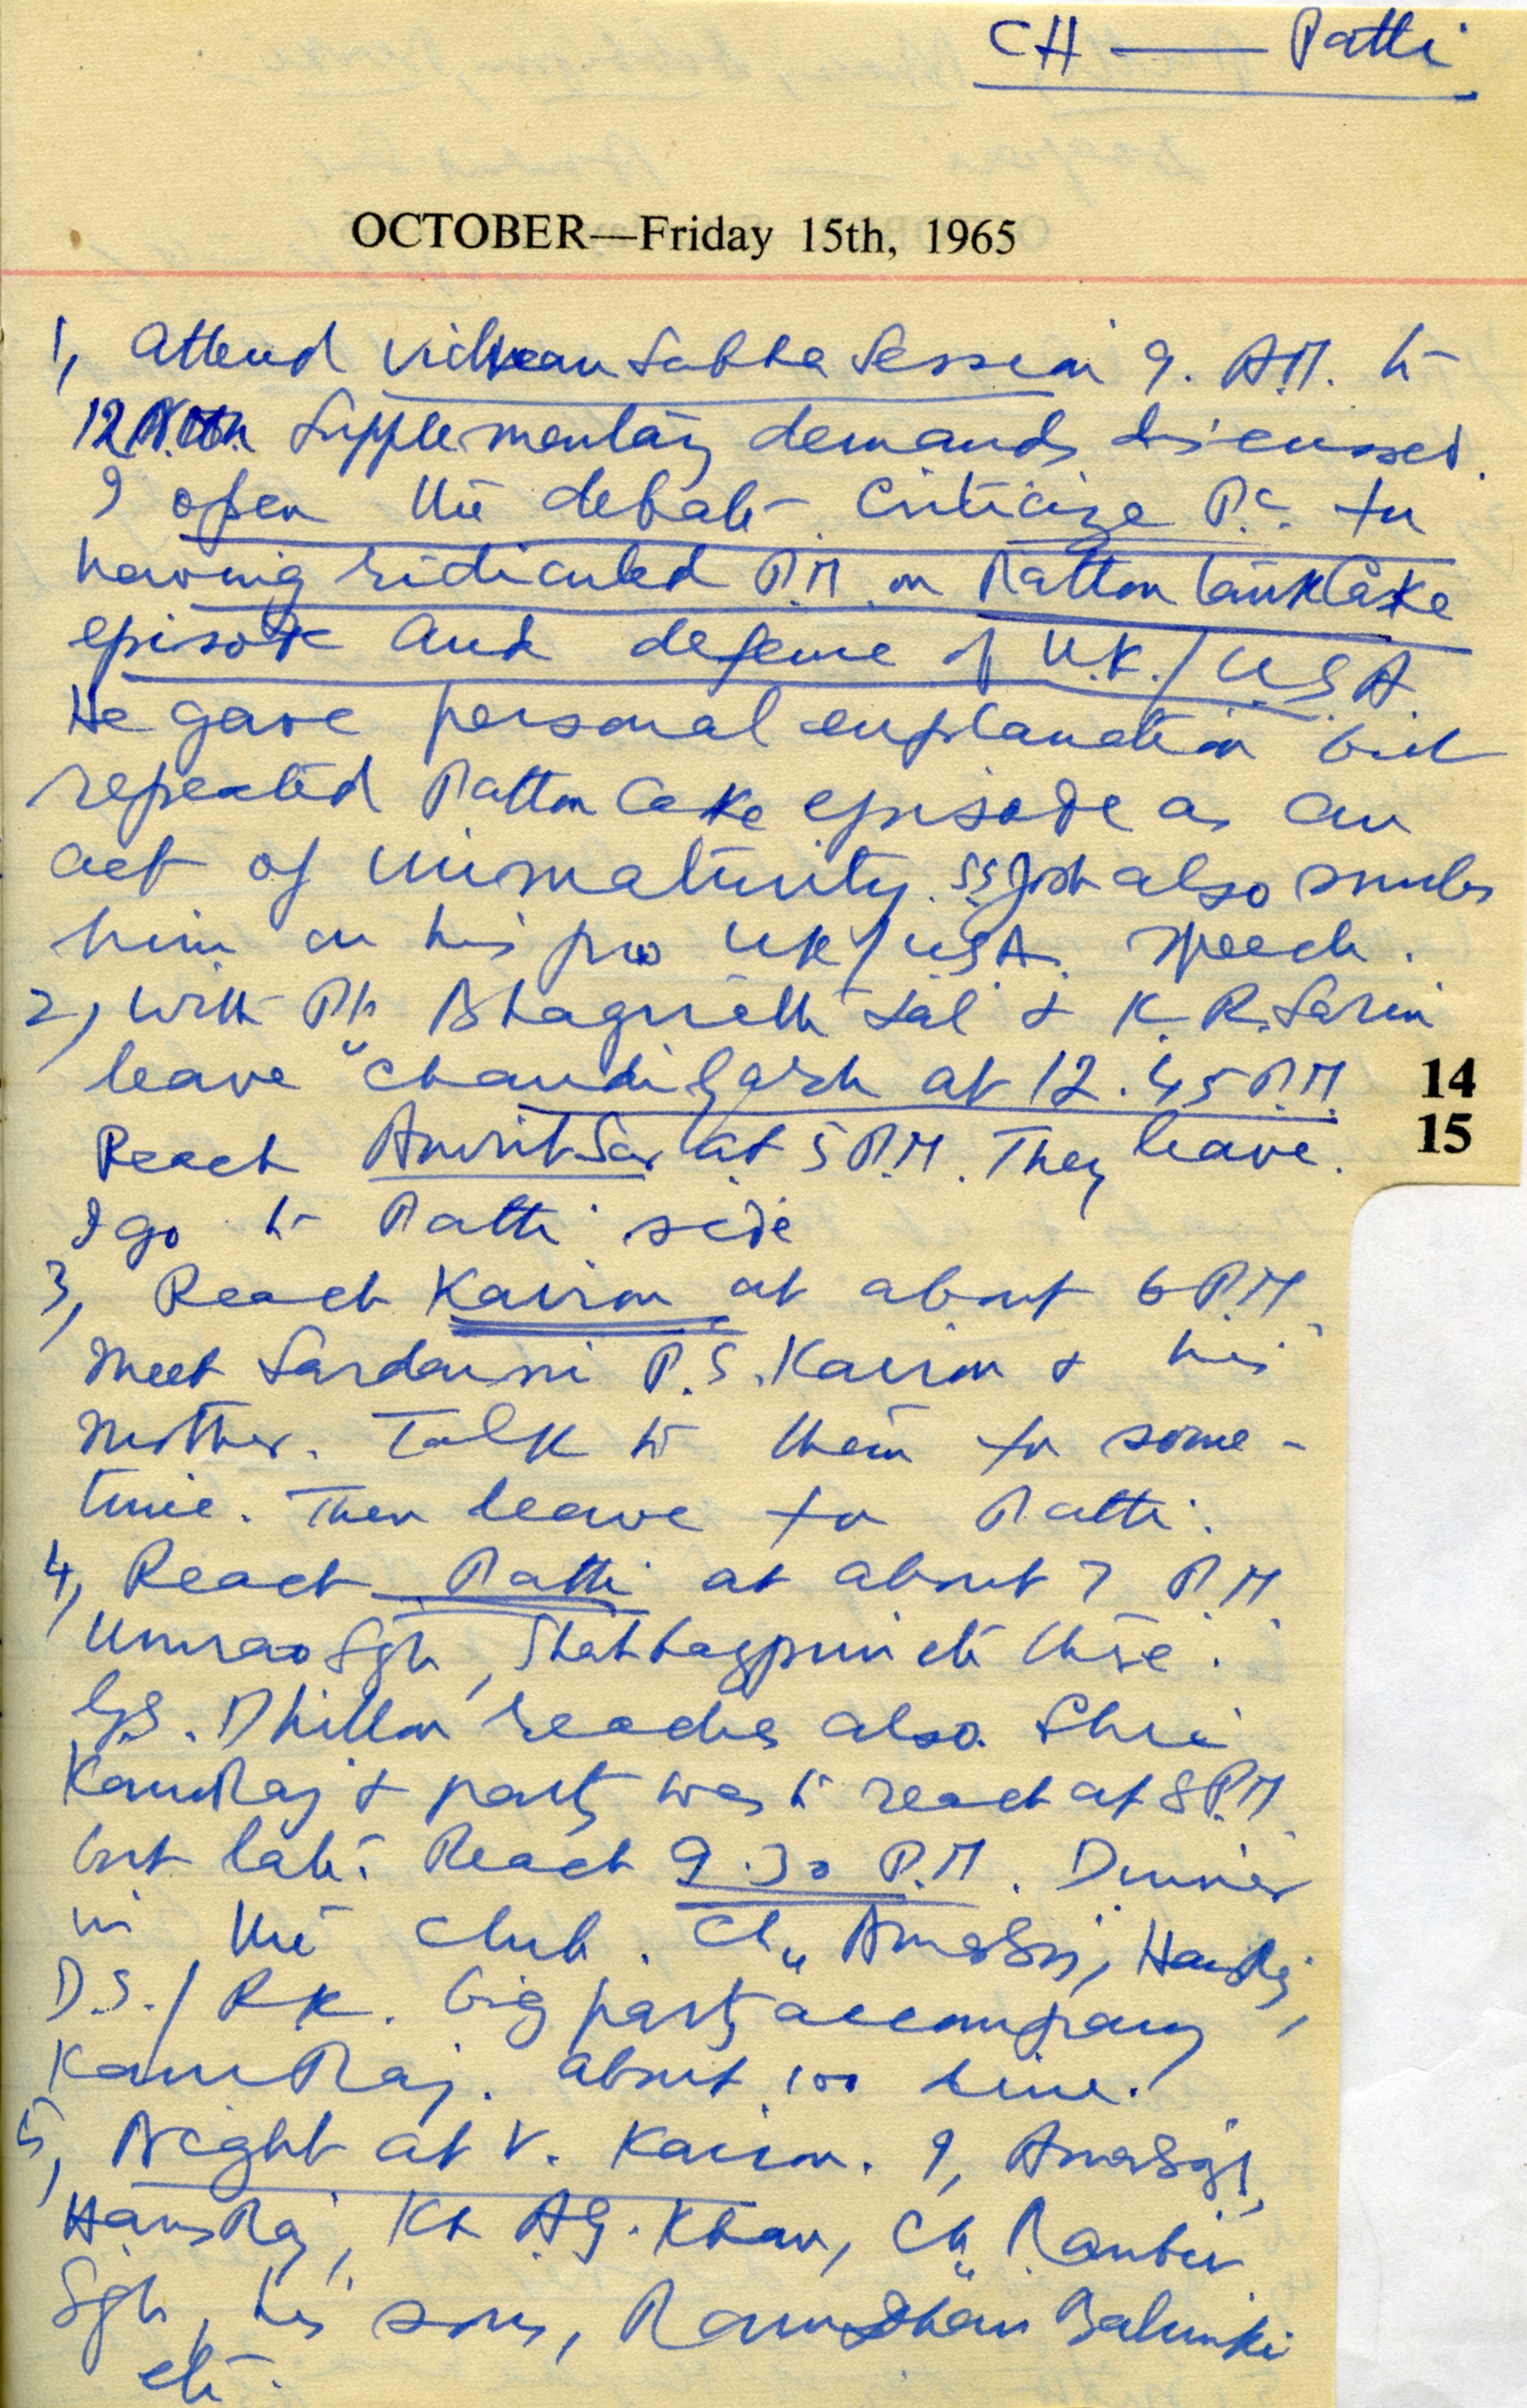 CH — Patti
OCTOBER—Friday 15th, 1965
1, Attend Vidhan Sabha Session 9. A.M. to
12 Noon Supplementary demands discussed.
I open the debate. Criticize P.C. for
having ridiculed P.M. on Patton tank Cake
episode and defence of U.K./U.S.A.
He gave personal explanation but
repeated Patton Cake episode as an
act of immaturity. SS Josh also snubs
him on his pro UK/USA. speech.
2, With Pt. Bhagirath Lal & K.R. Sarin
leave Chandigarh at 12.45 P.M.
14
Reach Amritsar at 5 P.M. They leave.
15
I go to Patti side
3, Reach Kairon at about 6 P.M.
Meet Sardarni P.S. Kairon & his
mother. Talk to them for some-
time. Then leave for Patti.
4, Reach Patti at about 7 P.M.
Umrao Sgh, Shahbazpuri etc there.
GS. Dhillon reaches also. Shri
KamRaj & party was to reach at 8 P.M.
but late. Reach 9.30 P.M. Dinner
in the Club. Ch. AmarSgh, HansRaj,
D.S./R.K. big party accompany
KamRaj. About 100 dine.
5, Night at V. Kairon. I, AmarSgh,
HansRaj, Kh AG. Khan, Ch. Ranbir
Sgh, his sons, Ramdhan Balmiki
etc.